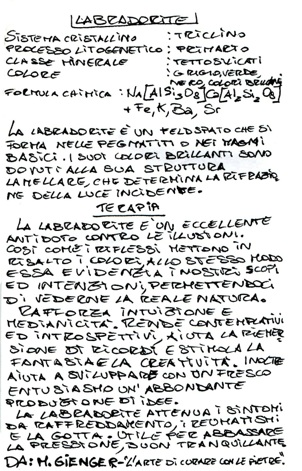 LABRADORITE
SISTEMA CRISTALLINO : TRICLINO
PROCESSO LITOGENETICO : PRIMARIO
CLASSE MINERALE : TETTOSILICATI
COLORE : GRIGIO, VERDE,
NERO, COLORI BRILLANTI
FORMULA CHIMICA : Na[AlSi3O8]Ca[Al2Si2O8]
+ Fe, K, Ba, Sr
LA LABRADORITE È UN FELDSPATO CHE SI
FORMA NELLE PEGMATITI O NEI MAGMI
BASICI. I SUOI COLORI BRILLANTI SONO
DOVUTI ALLA SUA STRUTTURA
LAMELLARE, CHE DETERMINA LA RIFRAZIO
NE DELLA LUCE INCIDENTE.
TERAPIA
LA LABRADORITE È UN ECCELLENTE
ANTIDOTO CONTRO LE ILLUSIONI.
COSÌ COME I RIFLESSI METTONO IN
RISALTO I COLORI, ALLO STESSO MODO
ESSA EVIDENZIA I NOSTRI SCOPI
ED INTENZIONI, PERMETTENDOCI
DI VEDERNE LA REALE NATURA.
RAFFORZA INTUIZIONE E
MEDIANICITÀ. RENDE CONTEMPLATIVI
ED INTROSPETTIVI, AIUTA LA RIEMER
SIONE DI RICORDI E STIMOLA LA
FANTASIA E LA CREATIVITÀ. INOLTRE
AIUTA A SVILUPPARE CON UN FRESCO
ENTUSIASMO UN'ABBONDANTE
PRODUZIONE DI IDEE.
LA LABRADORITE ATTENUA I SINTOMI
DA RAFFREDDAMENTO, I REUMATISMI
E LA GOTTA. UTILE PER ABBASSARE
LA PRESSIONE, BUON TRANQUILLANTE.
DA: M. GIENGER - "L'ARTE DI CURARE CON LE PIETRE"